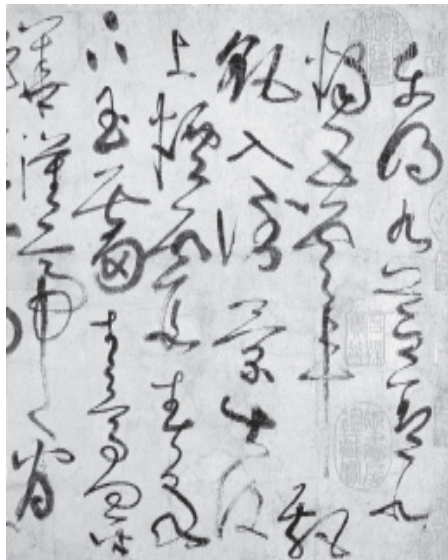 東明九芝蓋北
燭五雲車飄
飖入倒景出沒
上煙霞春泉
下玉霤青鳥向金
華漢帝看